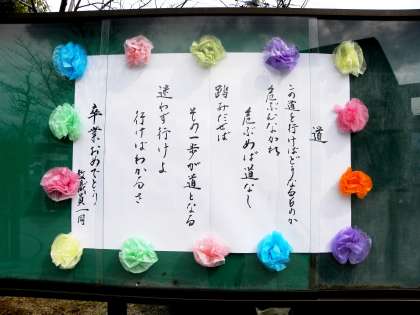 道
この道を行けばどうなるものか
危ぶむなかれ
危ぶめば道なし
踏みだせば
その一歩が道となる
迷わず行けよ
行けばわかるさ
卒業おめでとう!
教職員一同